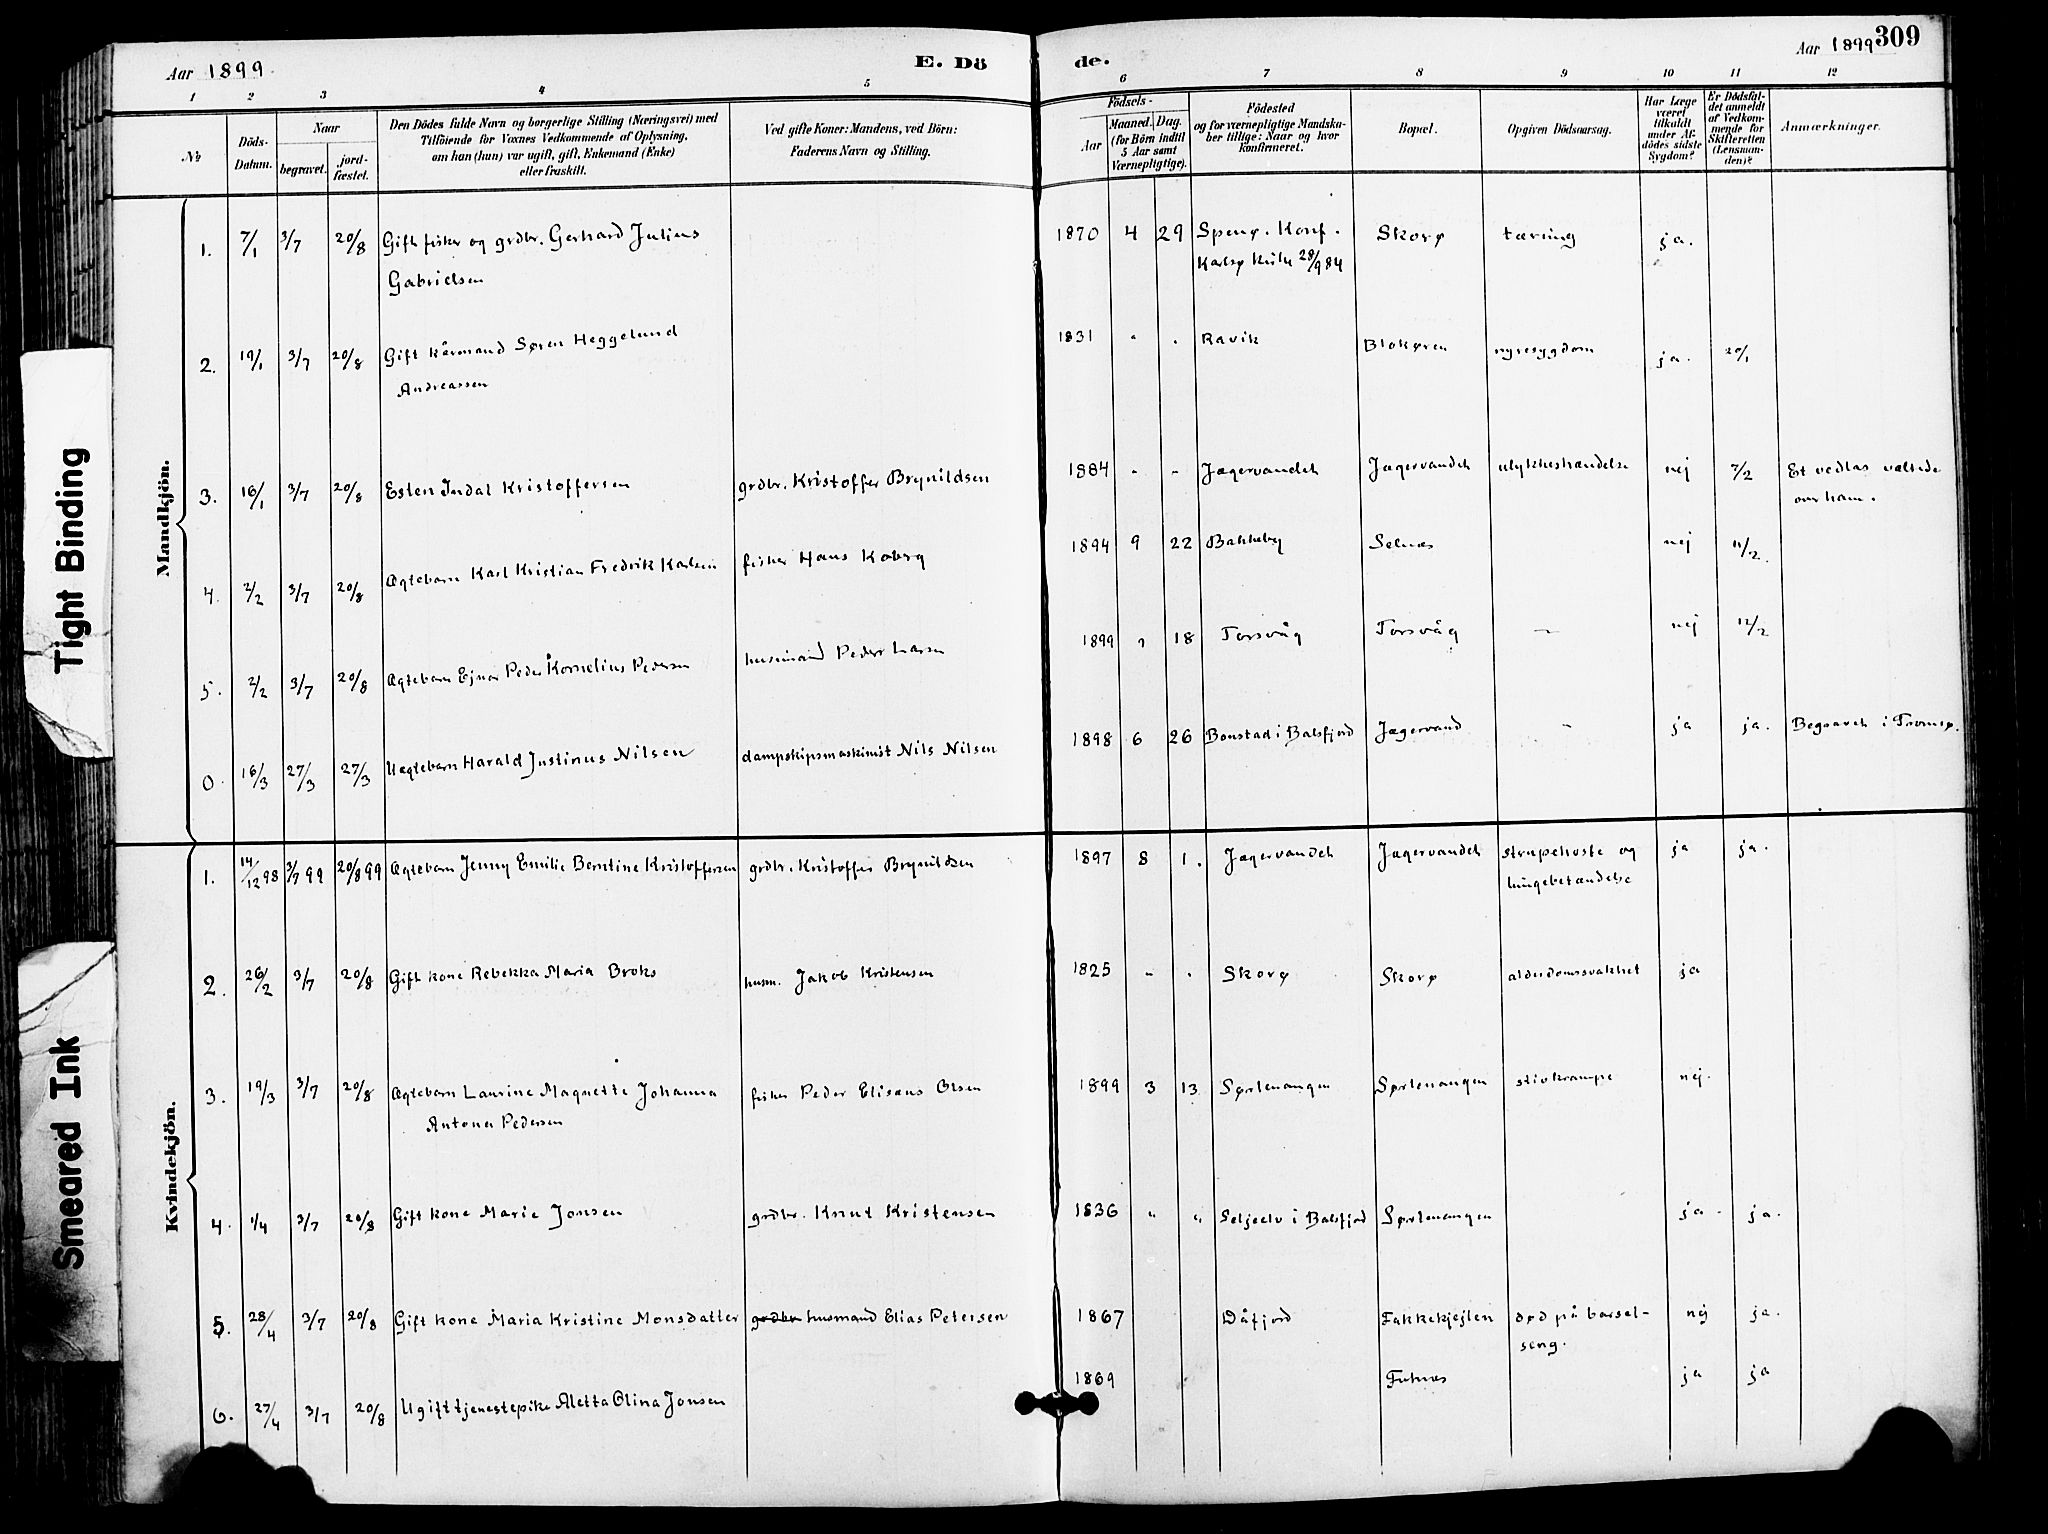 Aar 1899. E. Dö de. Aar 1899 309
1 2 3 4 5 6 7 8 9 10 11 12
№
Döds-
Datum.
Naar
begravet.
jord-
fæstet.
Den Dödes fulde Navn og borgerlige Stilling (Næringsvei) med
Tilföiende for Voxnes Vedkommende af Oplysning,
om han (hun) var ugift, gift, Enkemand (Enke)
eller fraskilt.
Ved gifte Koner: Mandens, ved Börn:
Faderens Navn og Stilling.
Födsels-
Aar
Maaned. Dag.
(for Börn indtil
5 Aar samt
Værnepligtige).
Födested
og for værnepligtige Mandska-
ber tillige: Naar og hvor
konfirmeret.
Bopæl.
Opgiven Dödsaarsag.
Har Læge
været
tilkaldt
under Af-
dödes sidste
Sygdom?
Er Dödsfal-
det anmeldt
af Vedkom-
mende for
Skifteretten
(Lensman-
den)?
Anmærkninger.
Mandkjön.
1. 7/1 3/7 20/8 Gift fisker og grdbr. Gerhard Julius 1870 4 29 Spenø. Konf. Skorø tæring ja.
Gabrielsen Karlsø Kirke 28/9 84
2. 19/1 3/7 20/8 Gift kårmand Søren Heggelund 1831 " " Ravik Blokøren nyresygdom ja. 20/1
Andreassen
3. 16/1 3/7 20/8 Eslen Indal Kristoffersen grdbr. Kristoffer Brynildsen 1884 - - Jægervandet Jægervandet ulykkeshændelse nej 7/2 Et vedlas væltede
over ham.
4. 2/2 3/7 20/8 Ægtebarn Karl Kristian Fredrik Karlsen fisker Hans Koberg 1894 9 22 Bakkeby Selnæs nej 11/2.
5. 2/2 3/7 20/8 Ægtebarn Ejnar Peder Kornelius Pedersen husmand Peder Larsen 1899 " 18 Torsvåg Torsvåg — nej 12/2
0. 16/3 27/3 27/3 Uægtebarn Harald Justinus Nilsen dampskipsmaskinist Nils Nilsen 1898 6 26 Bonstad i Balsfjord Jægervand - ja ja. Begravet i Tromsø.
Kvindekjön.
1. 14/12 98 3/7 99 20/8 99 Ægtebarn Jenny Emilie Berntine Kristoffersen grdbr. Kristoffer Brynildsen 1897 8 1. Jægervandet Jægervandet strupehoste og ja ja.
lungebetændelse
2. 26/2 3/7 20/8 Gift kone Rebekka Maria Broks husm. Jakob Kristensen 1825 - " Skorø Skorø alderdomssvakhet ja
3. 19/3 3/7 20/8 Ægtebarn Laurine Magnette Johanna fisker Peder Elisæus Olsen 1899 3 13 Sørlenangen Sørlenangen stivkrampe nej.
Antona Pedersen
4. 1/4 3/7 20/8 Gift kone Marie Jonsen grdbr. Knut Kristensen 1836 " " Seljeelv i Balsfjord Sørlenangen ja. ja.
5. 28/4 3/7 20/8 Gift kone Maria Kristine Monsdatter grdbr husmand Elias Petersen 1867 Dåfjord Fakkekjejlen død på barsel- nej ja.
seng.
6. 27/4 3/7 20/8 Ugift tjenestepike Aletta Olina Jonsen 1869 ja ja
Tight Binding
Smeared Ink